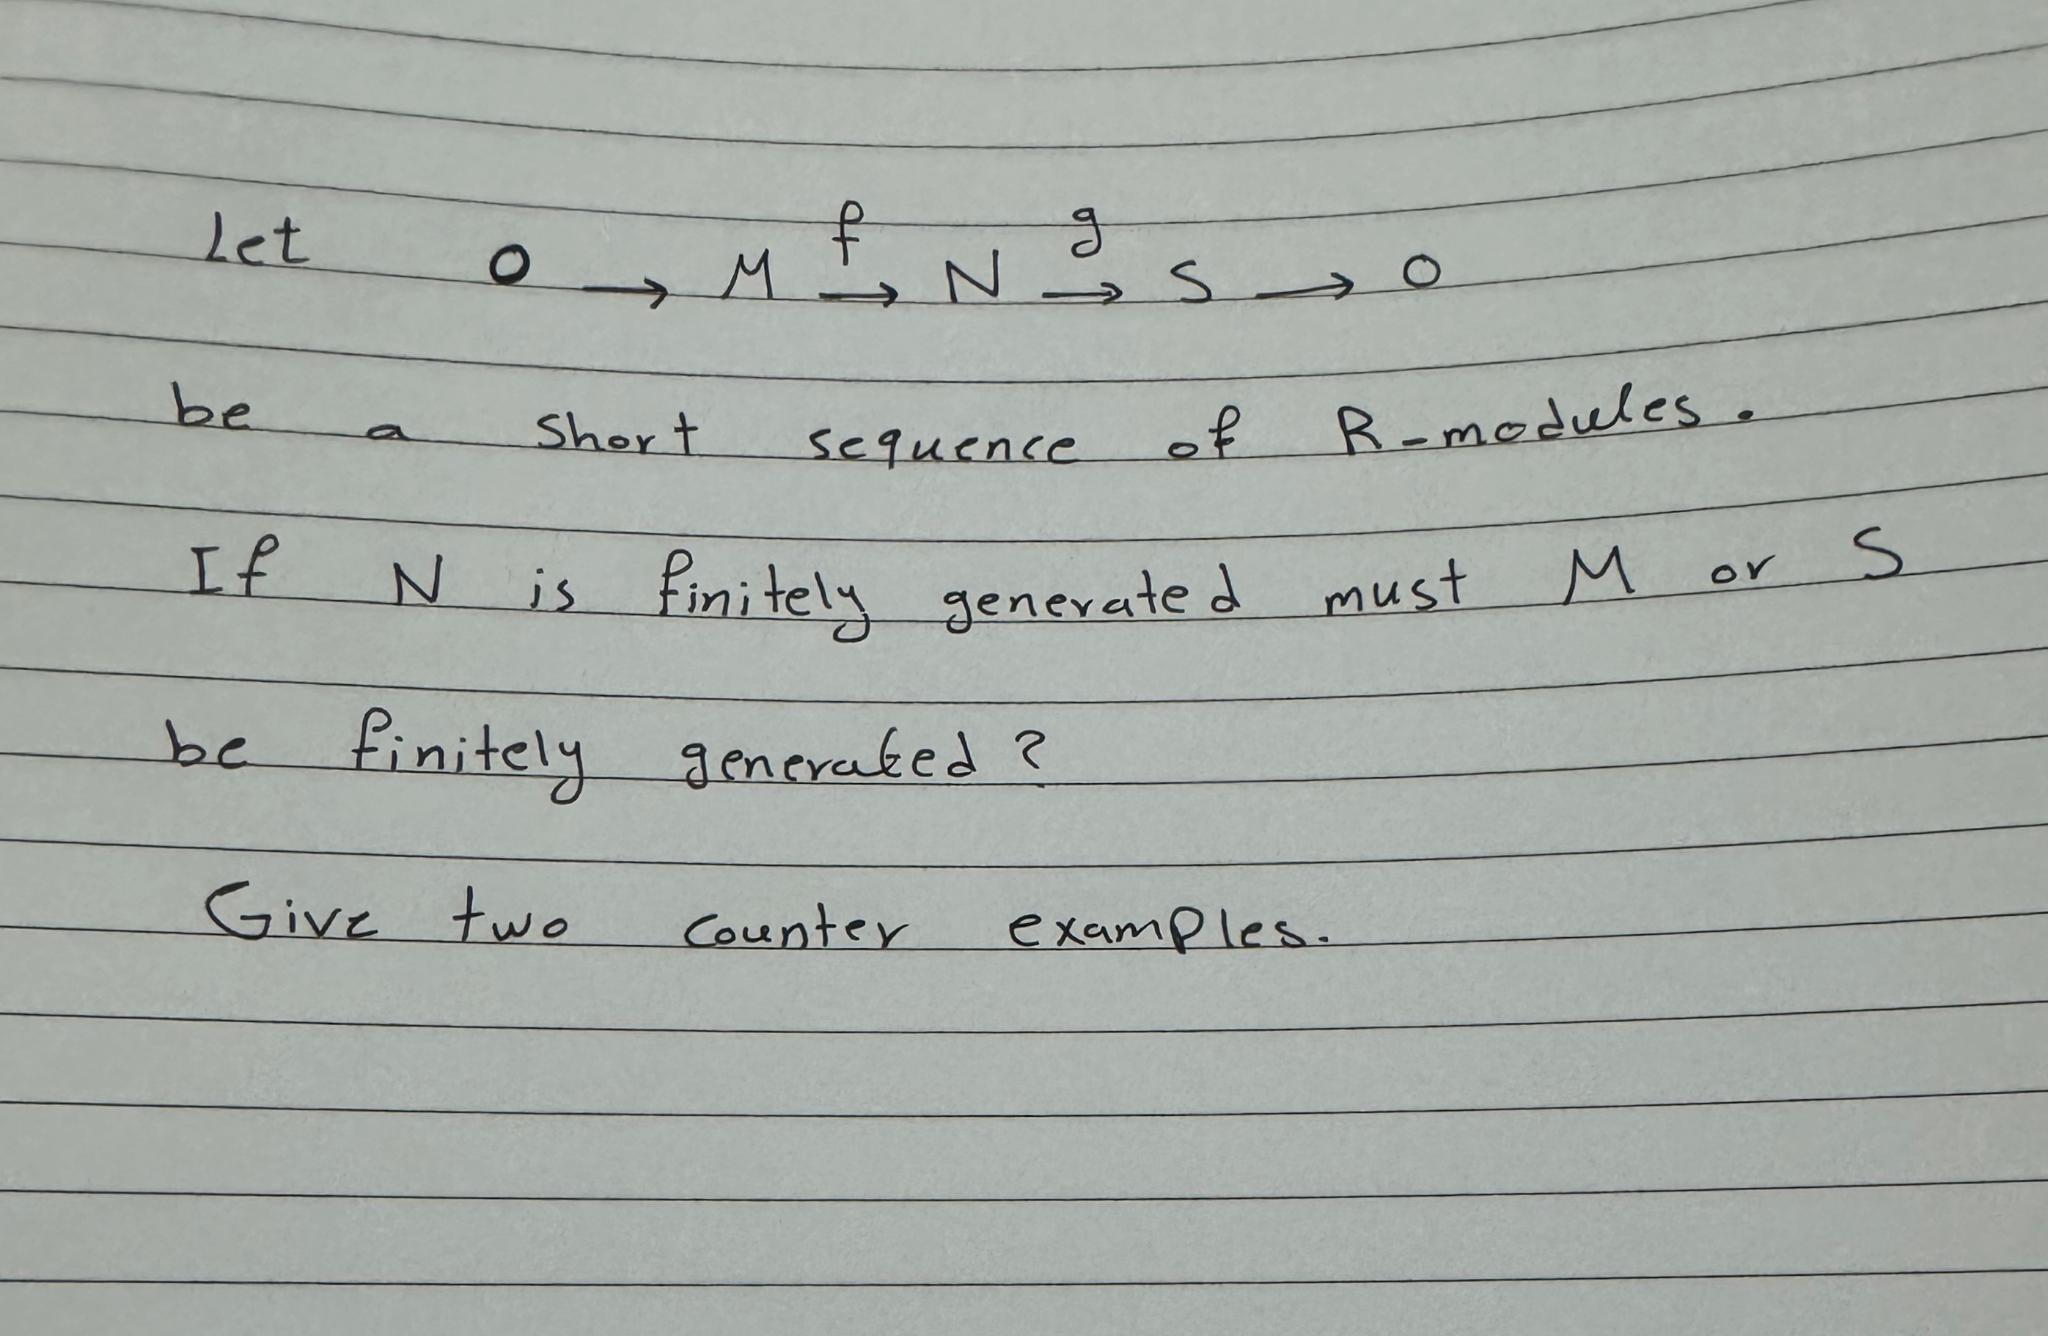 Let 0 → M f→ N g→ S → 0
be a short sequence of R-modules.
If N is finitely generated must M or S
be finitely generated?
Give two counter examples.